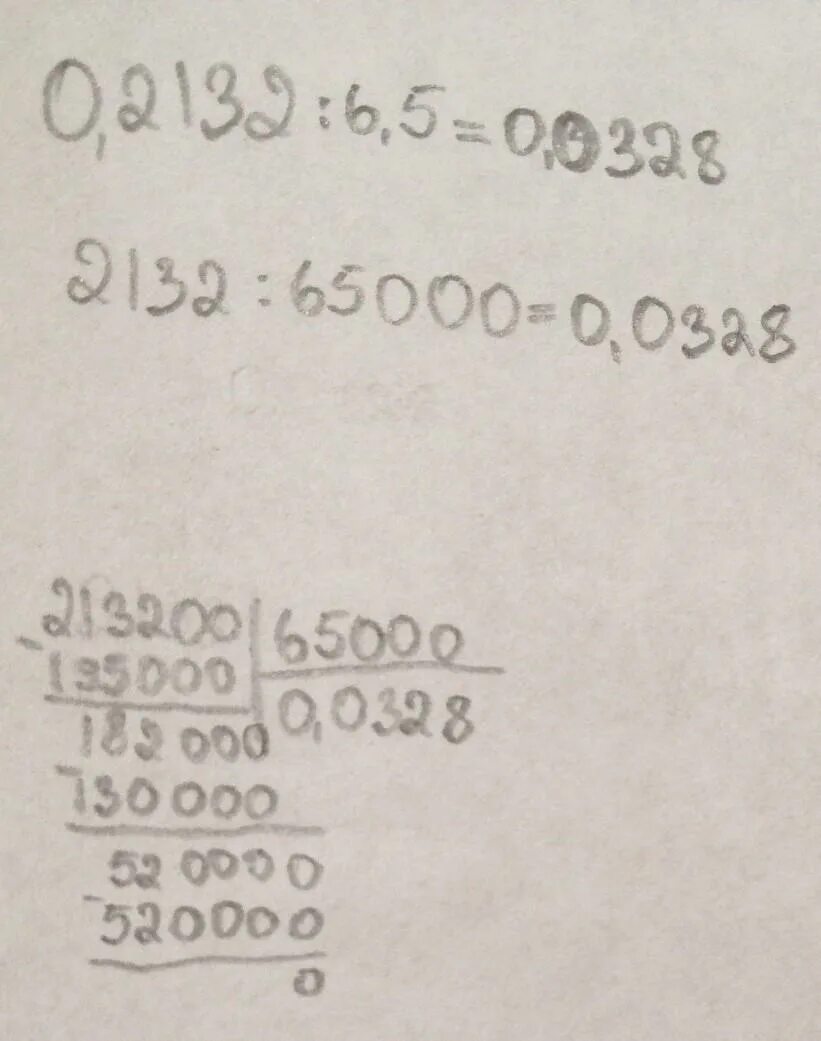 0,2132 : 6,5 = 0,0328
2132 : 65000 = 0,0328
- 213200 | 65000
195000 | 0,0328
182000
- 130000
520000
- 520000
0